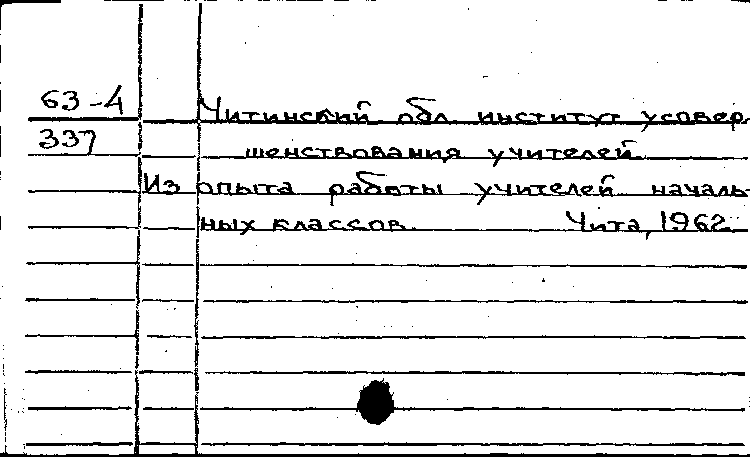 63-4
337
Читинский обл. институт усовер
шенствования учителей.
Из опыта работы учителей началь
ных классов. Чита, 1962.